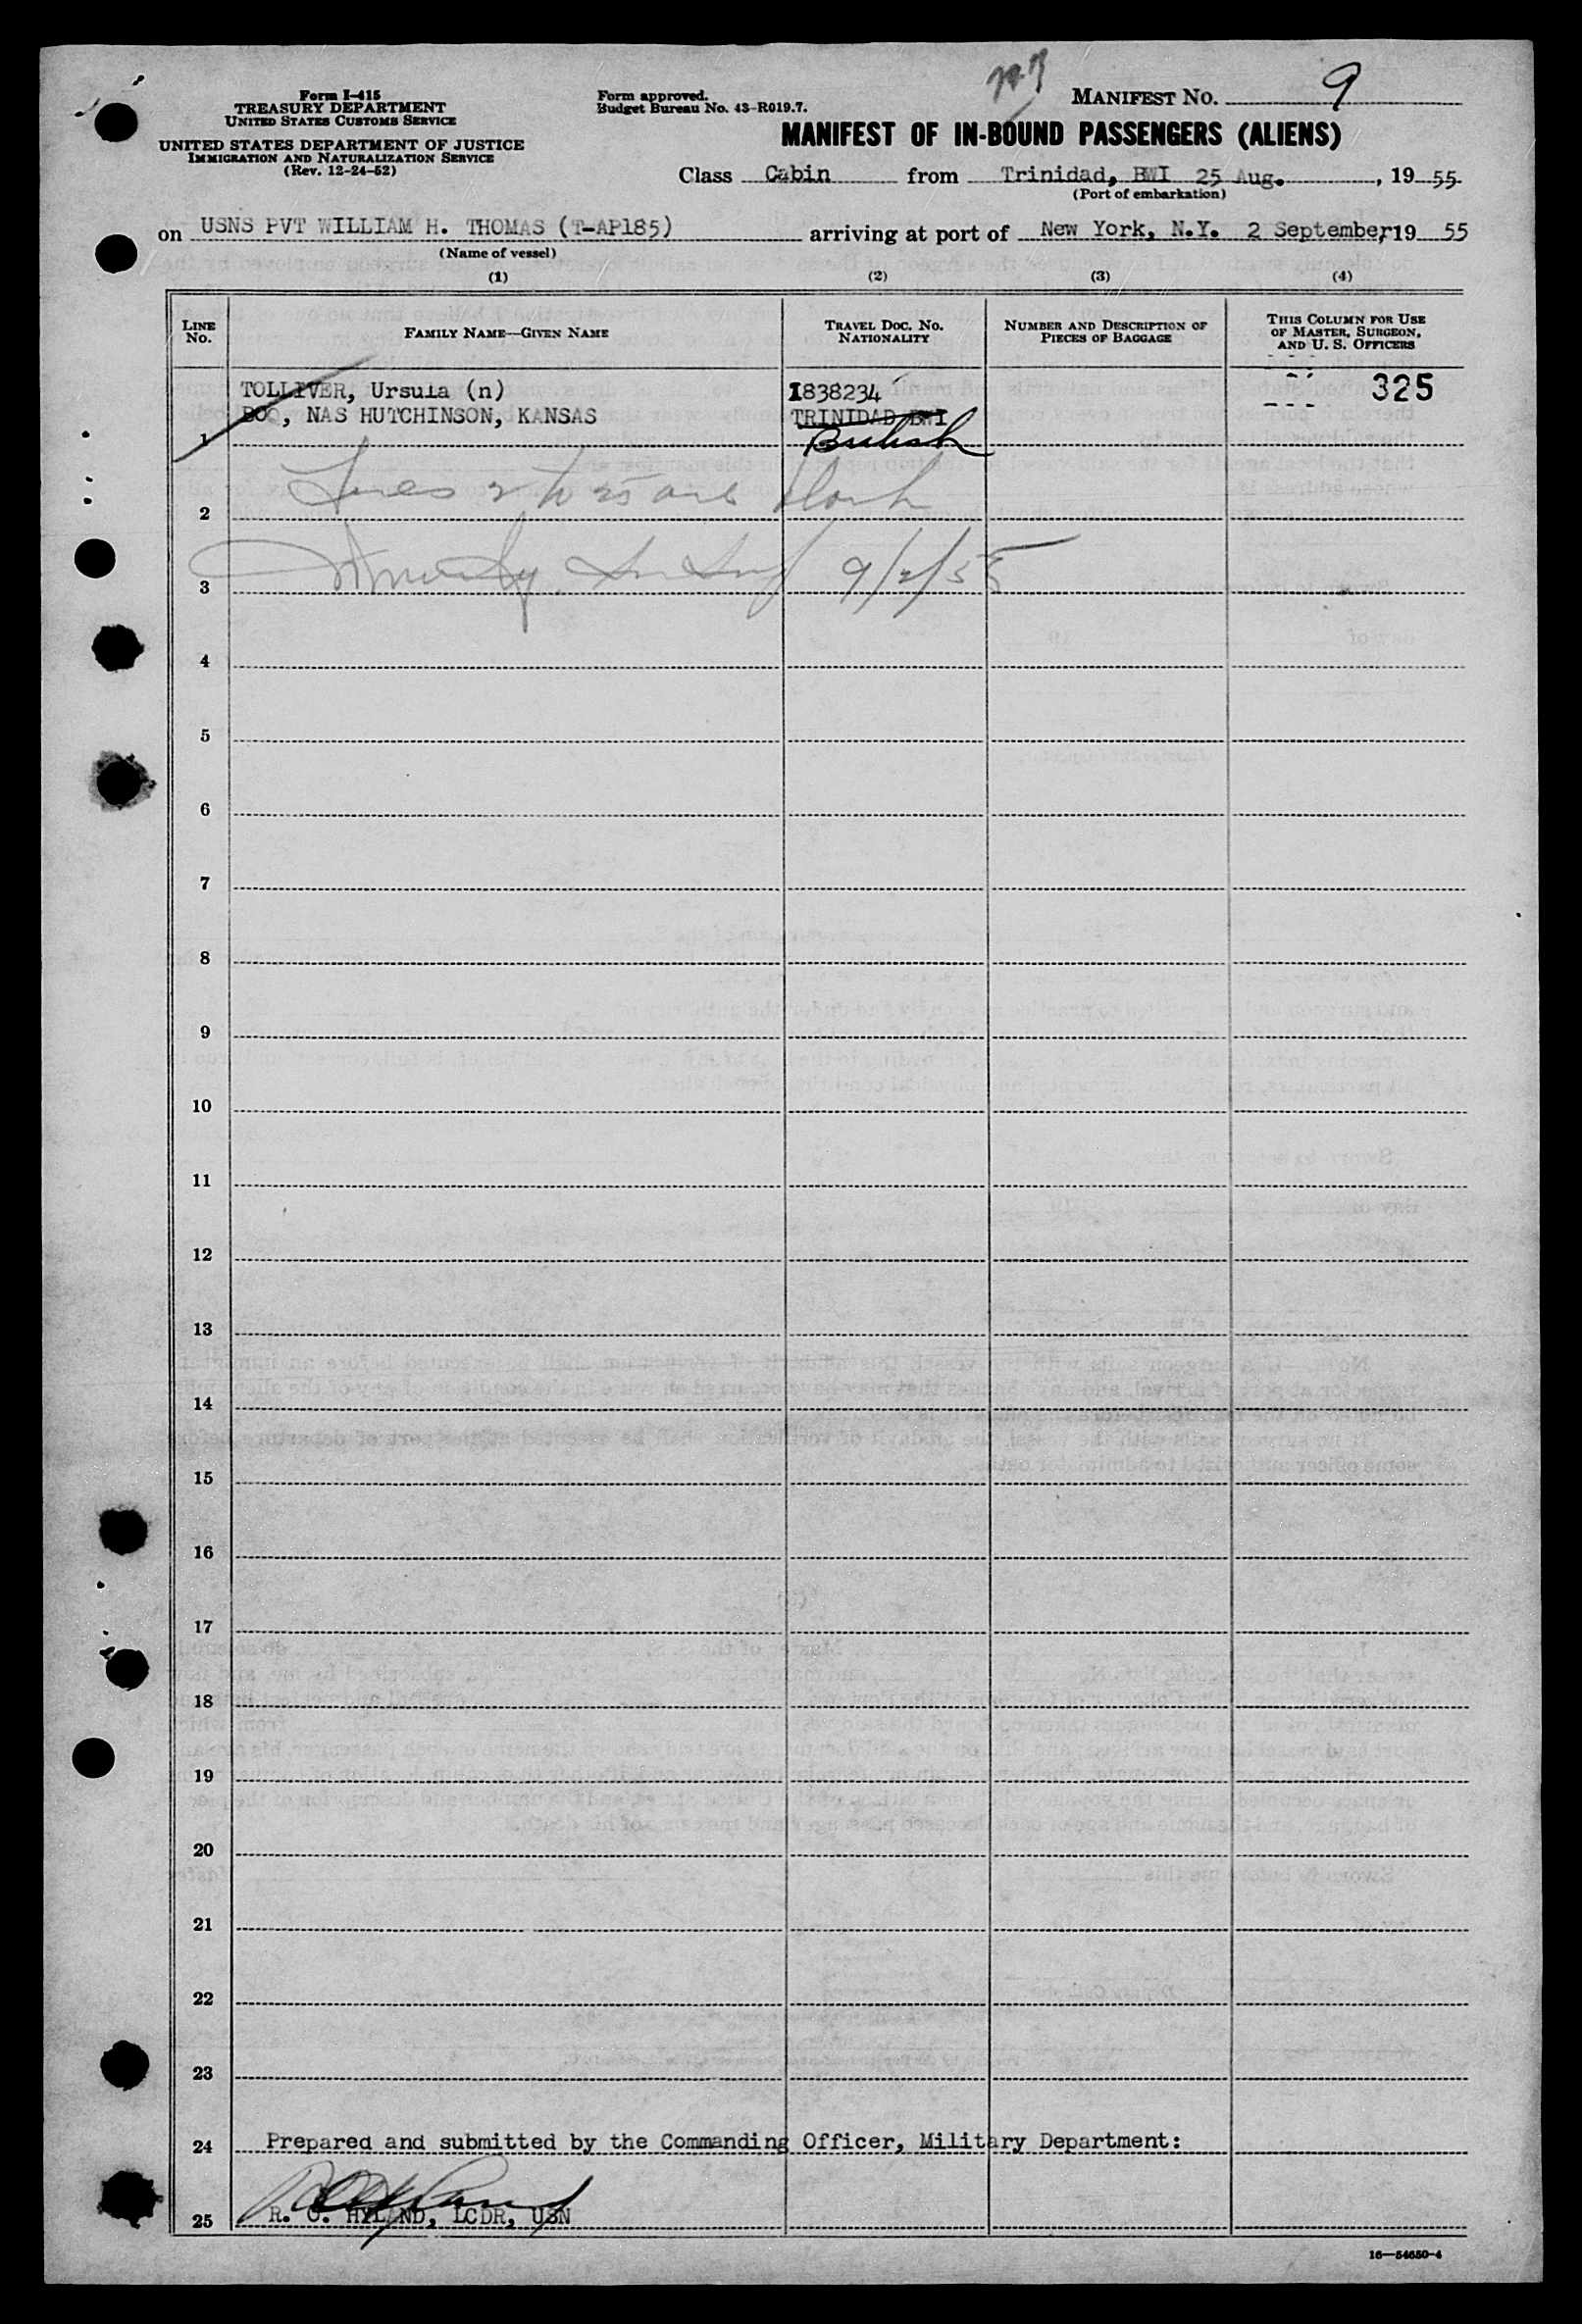 Form I-415
TREASURY DEPARTMENT
UNITED STATES CUSTOMS SERVICE
UNITED STATES DEPARTMENT OF JUSTICE
IMMIGRATION AND NATURALIZATION SERVICE
(Rev. 12-24-52)
Form approved.
Budget Bureau No. 43-R019.7.
MANIFEST No. 9
MANIFEST OF IN-BOUND PASSENGERS (ALIENS)
Class Cabin from Trinidad, BWI 25 Aug., 1955
(Port of embarkation)
on USNS PVT WILLIAM H. THOMAS (T-AP185) arriving at port of New York, N.Y. 2 September, 1955
(Name of vessel)
(1) (2) (3) (4)
LINE No. FAMILY NAME—GIVEN NAME TRAVEL DOC. NO. NATIONALITY NUMBER AND DESCRIPTION OF PIECES OF BAGGAGE THIS COLUMN FOR USE OF MASTER, SURGEON, AND U. S. OFFICERS
TOLLIVER, Ursula (n) I838234 325
BOQ, NAS HUTCHINSON, KANSAS TRINIDAD BWI
1 British
2 Lines 2 to 25 are blank
3 9/2/55
4
5
6
7
8
9
10
11
12
13
14
15
16
17
18
19
20
21
22
23
24 Prepared and submitted by the Commanding Officer, Military Department:
25 R. O. HYLAND, LCDR, USN
16—54650-4